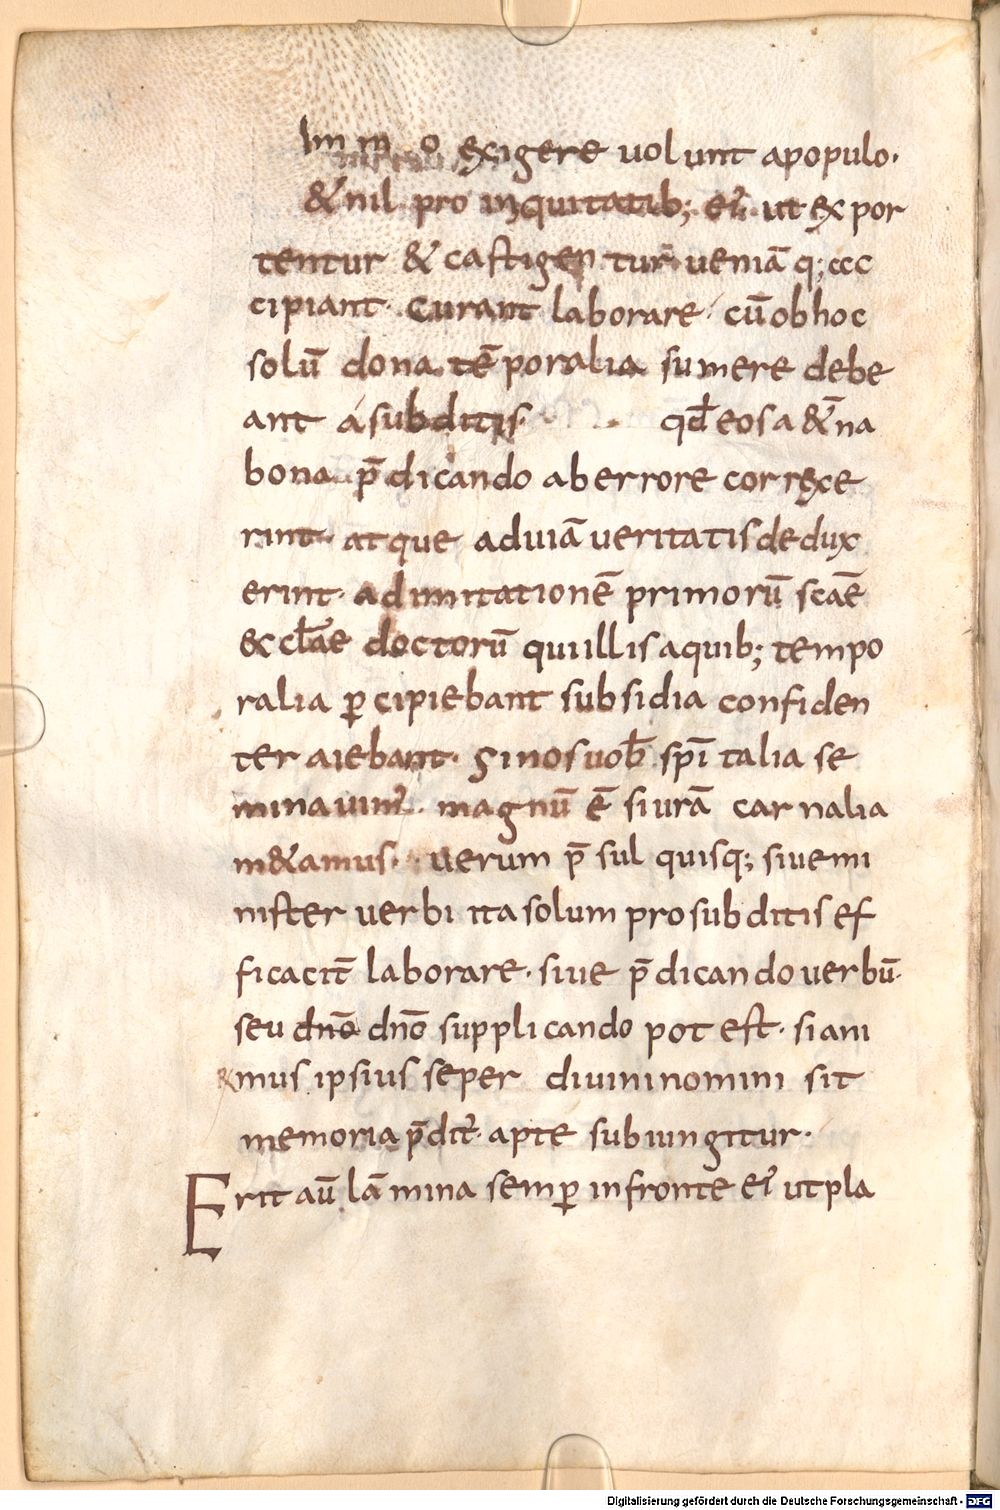 exigere uolunt apopulo·
&nil pro iniquitatib; ei᷒ ut expor
tentur & castigentur· ueniā q; ac
cipiant· Curant laborare· cū ob hoc
solū dona tēporalia sumere debe
ant á subditis· qđ eos a&̄na
bona p̄dicando ab errore correxe
rint· atque ad uiā ueritatis dedux
erint· ad imitationē primorū scāe
&cłae doctorū qui illis a quib; tempo
ralia ꝑcipiebant subsidia confiden
ter aiebant· Si nos uob̄ sp̄italia se
minauim᷒· magnū ē si urā carnalia
m&amus· uerum p̄sul quisq; siue mi
nister uerbi ita solum pro subditis ef
ficacit̄ laborare· siue p̄dicando uerbū·
seu dnō dnō supplicando potest· si ani
mus ipsius seper diuini nomini sit
memoria p̄dit᷒· apte subiungitur·
Erit aū lāmina semꝑ in fronte ei᷒ ut pla
Digitalisierung gefördert durch die Deutsche Forschungsgemeinschaft - DFG